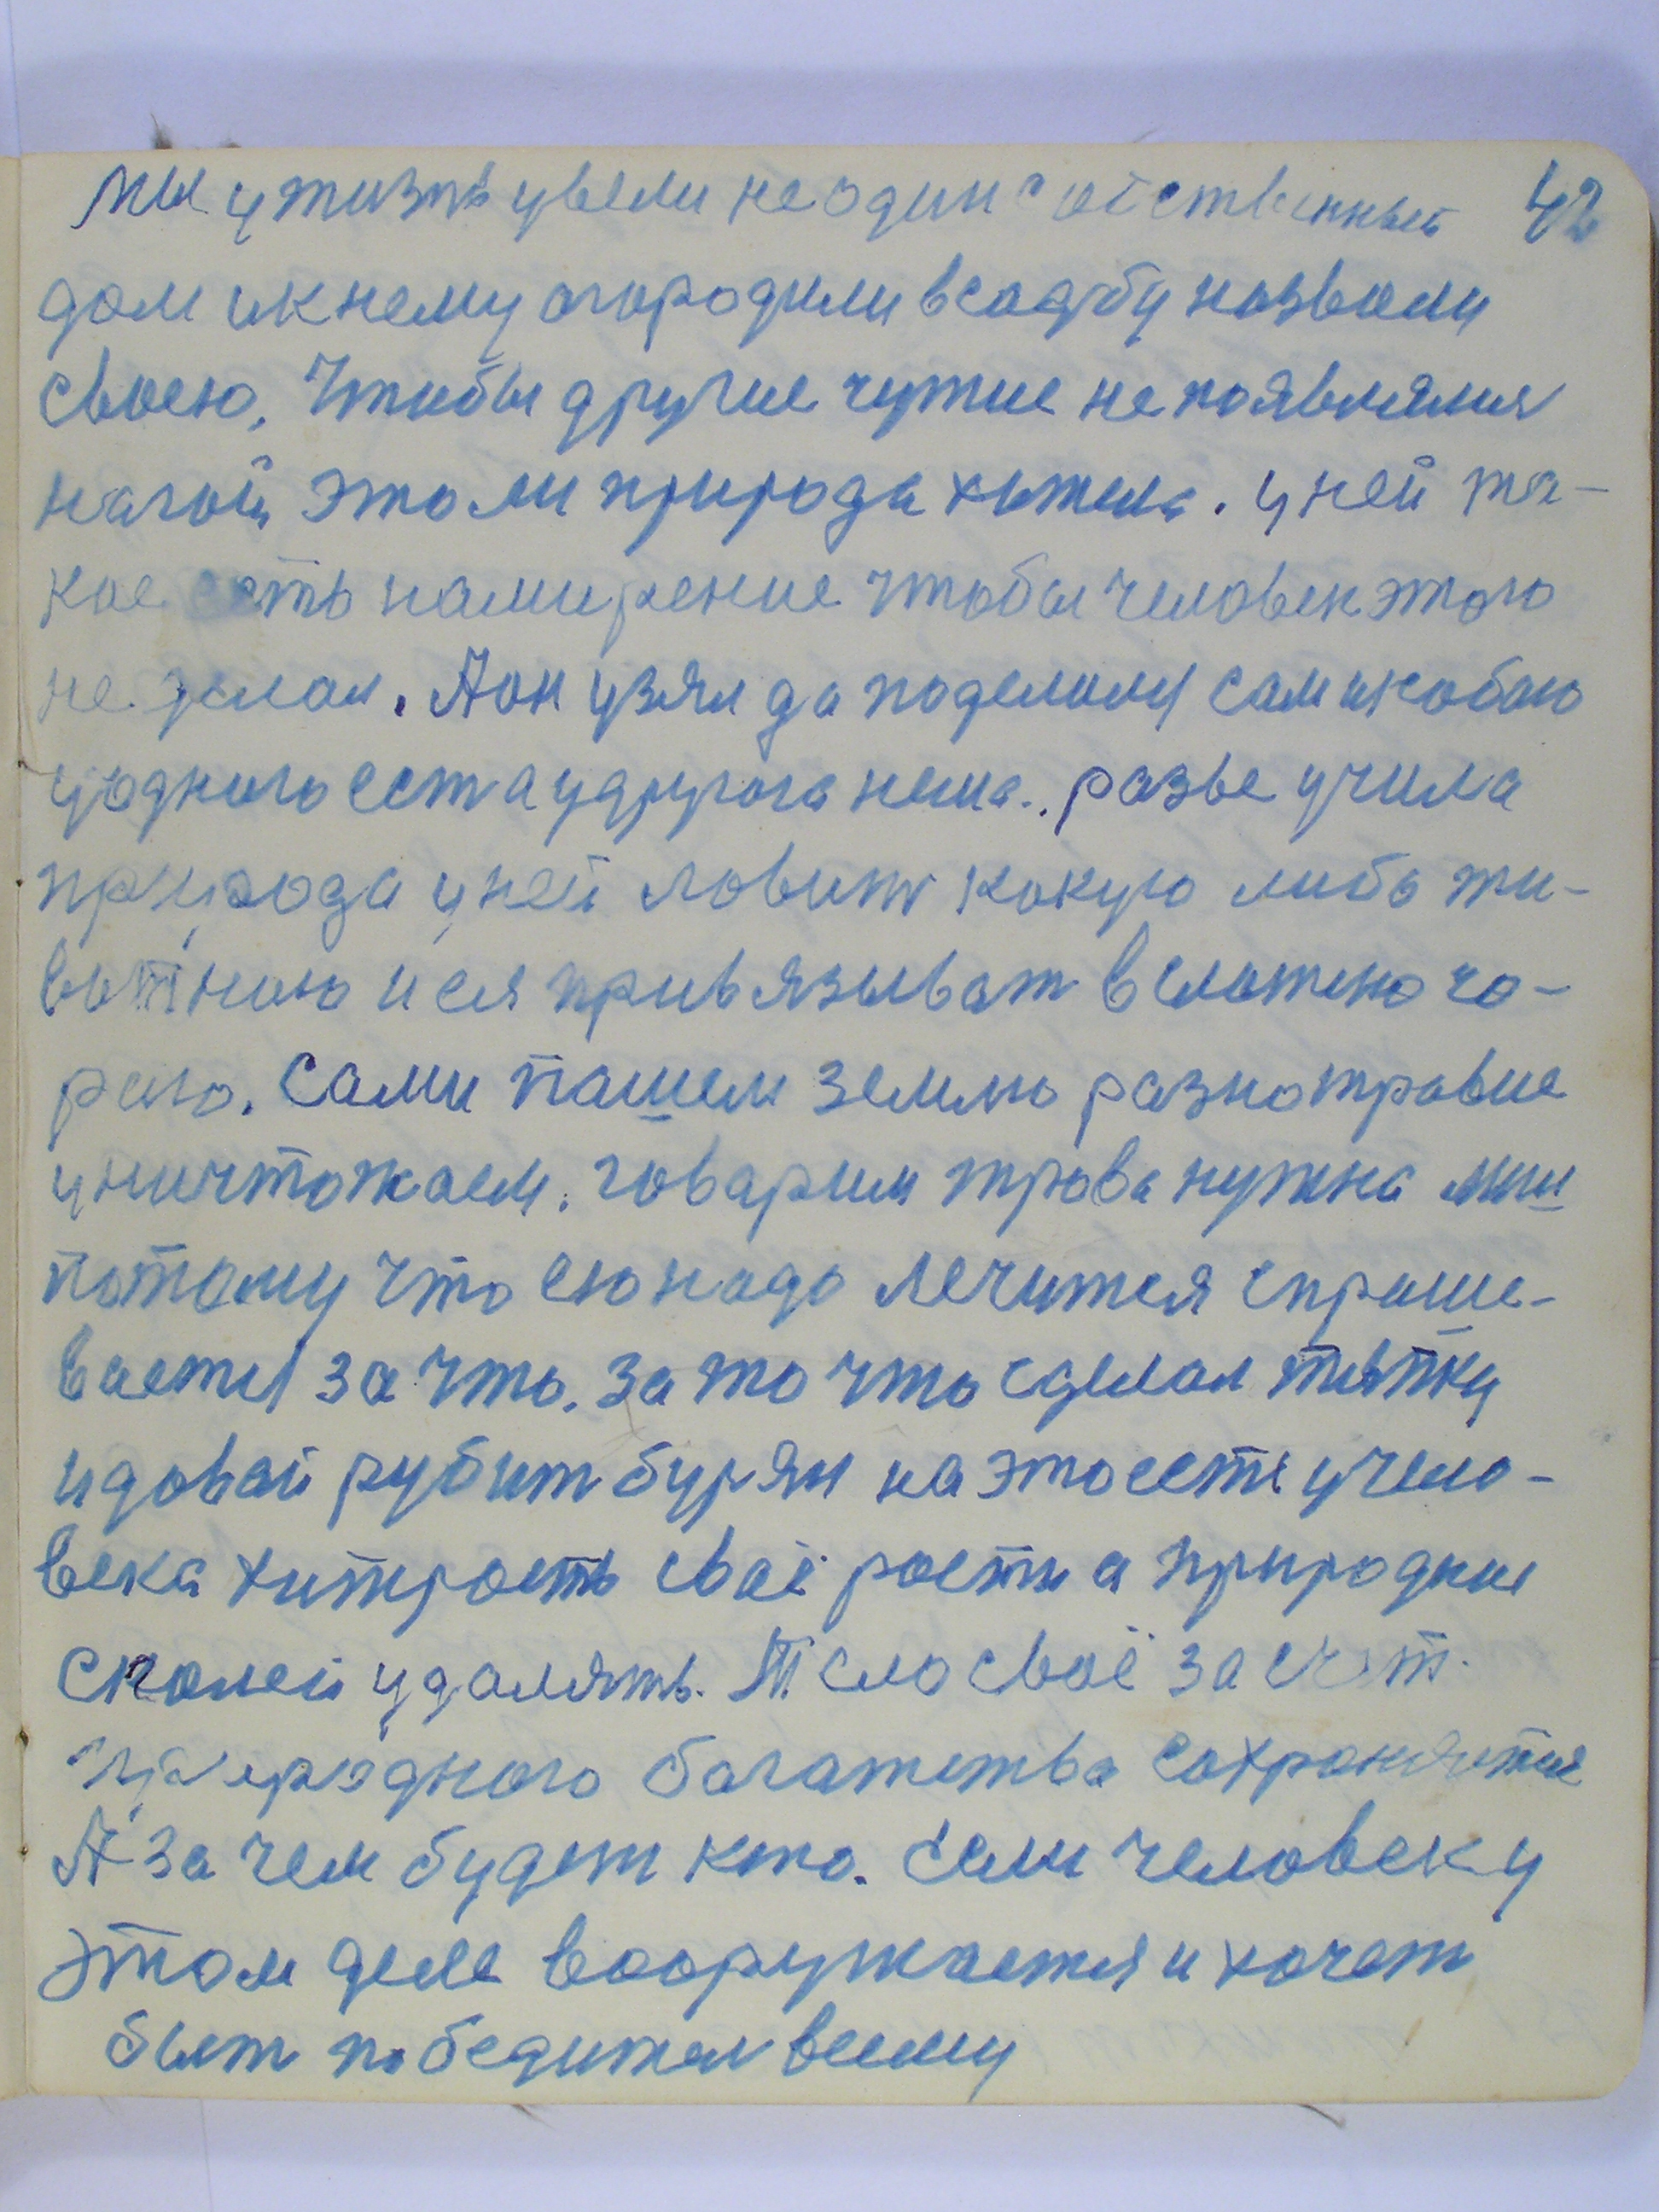 мы у жизнь увели не один собственный 42
дом и к нему огородили всадбу назвали
своею. Чтобы другие чужие не появлялися
ногой, это ли природа хотела. у ней та-
кое есть намирение чтобы человек этого
не делал. А он узял да поделился сам и собою
у одного ест а у другога нема.. разве учила
природа у ней ловить какую либо жи-
вотною и ея привязыват
рего. Сами пашем землю разнотравие
уничтожаем. говарим трава нужна
потому что ею надо лечится спраше-
вается за что. за то что сделал тяпку
и довай рубит бурян на это есть у чело-
века хитрость своё рости а природние
с полей удалять. Тело своё за счет
природного богатства сохраняется
А за чем будет кто. Если человек у
этом деле вооружается и хочет
быт победител всему